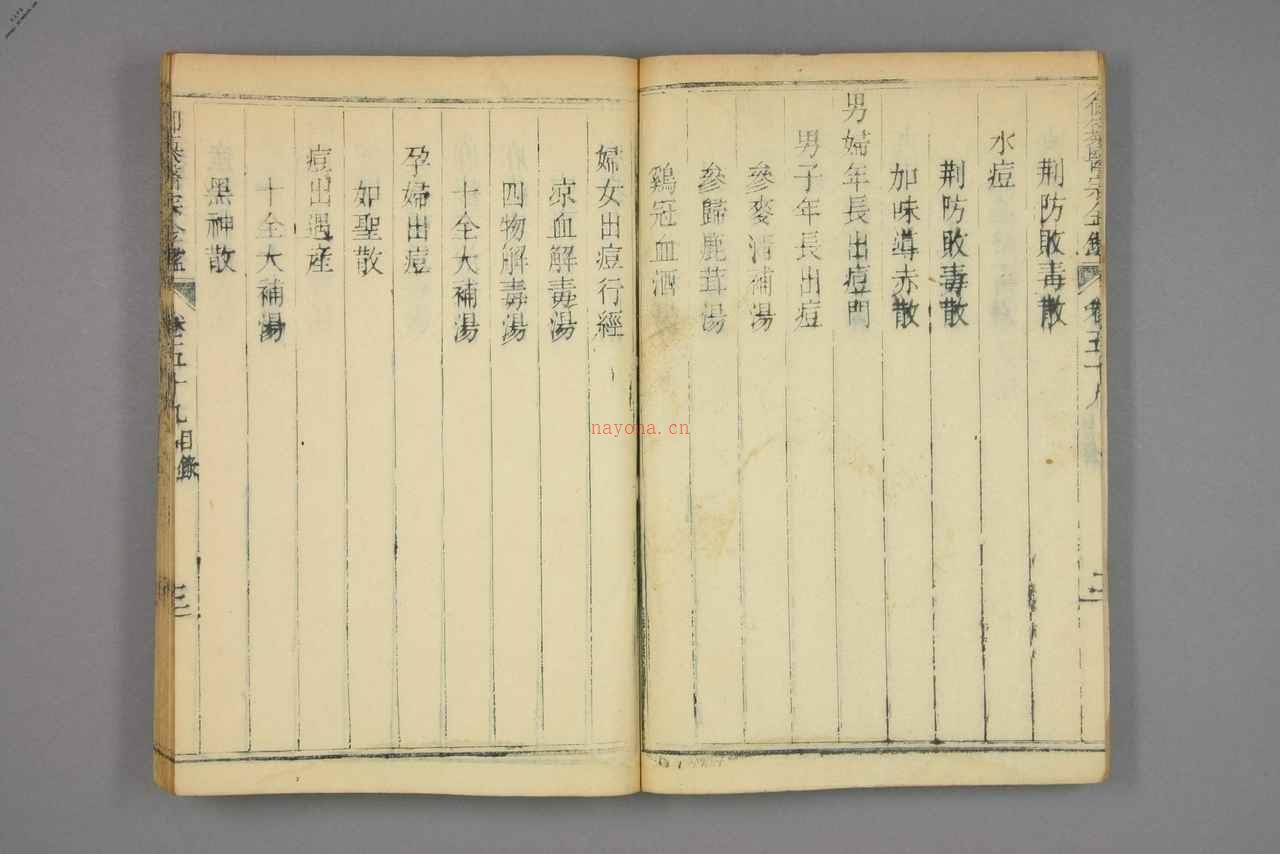 荆防敗毒散
水痘
荆防敗毒散
加味導赤散
男婦年長出痘門
男子年長出痘
參麥清補湯
參歸鹿茸湯
鷄冠血酒
婦女出痘行經
凉血解毒湯
四物解毒湯
十全大補湯
孕婦出痘
如聖散
痘出遇産
十全大補湯
黑神散
卷五十九目錄
三
nayona.cn